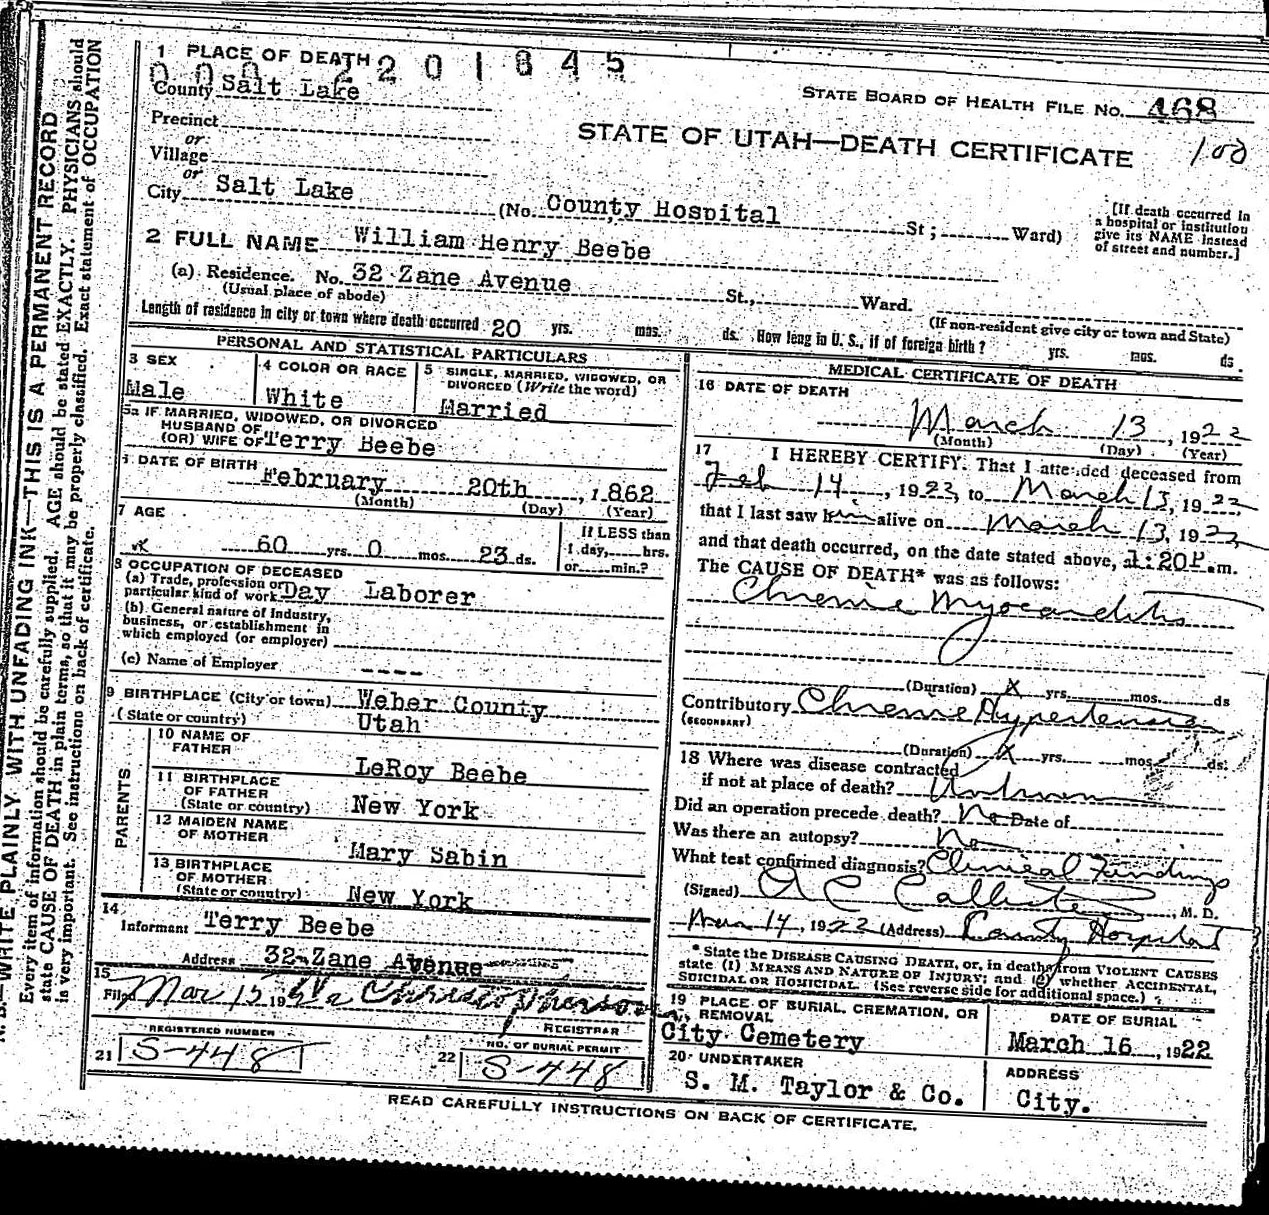 1 PLACE OF DEATH
0 0 0 2 2 0 1 8 4 5
County Salt Lake
STATE BOARD OF HEALTH FILE No. 468
Precinct
or
STATE OF UTAH—DEATH CERTIFICATE 100
Village
or
City Salt Lake (No. County Hospital St; Ward)
[If death occurred in
a hospital or institution
give its NAME instead
of street and number.]
2 FULL NAME William Henry Beebe
(a) Residence. No. 32 Zane Avenue St., Ward.
(Usual place of abode) (If non-resident give city or town and State)
Length of residence in city or town where death occurred 20 yrs. mos. ds. How long in U. S., if of foreign birth? yrs. mos. ds.
PERSONAL AND STATISTICAL PARTICULARS
3 SEX
Male
4 COLOR OR RACE
White
5 SINGLE, MARRIED, WIDOWED, OR
DIVORCED (Write the word)
Married
5a IF MARRIED, WIDOWED, OR DIVORCED
HUSBAND OF
(OR) WIFE OF Terry Beebe
6 DATE OF BIRTH
February 20th, 1862
(Month) (Day) (Year)
7 AGE
60 yrs. 0 mos. 23 ds.
If LESS than
1 day, hrs.
or min.?
8 OCCUPATION OF DECEASED
(a) Trade, profession or
particular kind of work Day Laborer
(b) General nature of Industry,
business, or establishment in
which employed (or employer)
(c) Name of Employer ----
9 BIRTHPLACE (City or town) Weber County
(State or country) Utah
PARENTS
10 NAME OF
FATHER
LeRoy Beebe
11 BIRTHPLACE
OF FATHER
(State or country) New York
12 MAIDEN NAME
OF MOTHER
Mary Sabin
13 BIRTHPLACE
OF MOTHER
(State or country) New York
14
Informant Terry Beebe
Address 32 Zane Avenue
15
Filed Mar 15 19
REGISTRAR
REGISTERED NUMBER
21 S-448
NO. OF BURIAL PERMIT
22 S-448
MEDICAL CERTIFICATE OF DEATH
16 DATE OF DEATH
March 13, 1922
(Month) (Day) (Year)
17 I HEREBY CERTIFY. That I attended deceased from
Feb 14, 1922, to March 13, 1922
that I last saw him alive on March 13, 1922
and that death occurred, on the date stated above, at: 20 P.m.
The CAUSE OF DEATH* was as follows:
Chronic Myocarditis
(Duration) X yrs. mos. ds
Contributory Chronic Hypertension
(SECONDARY)
(Duration) X yrs. mos. ds.
18 Where was disease contracted
if not at place of death? Unknown
Did an operation precede death? No Date of
Was there an autopsy? No
What test confirmed diagnosis? Clinical Findings
(Signed) A C Callister, M. D.
Mar 14, 1922 (Address) County Hospital
* State the DISEASE CAUSING DEATH, or, in deaths from VIOLENT CAUSES
state (1) MEANS AND NATURE OF INJURY and (2) whether ACCIDENTAL,
SUICIDAL OR HOMICIDAL. (See reverse side for additional space.)
19 PLACE OF BURIAL, CREMATION, OR
REMOVAL
City Cemetery
DATE OF BURIAL
March 16, 1922
20 UNDERTAKER
S. M. Taylor & Co.
ADDRESS
City.
READ CAREFULLY INSTRUCTIONS ON BACK OF CERTIFICATE.
WRITE PLAINLY WITH UNFADING INK—THIS IS A PERMANENT RECORD
Every item of information should be carefully supplied. AGE should be stated EXACTLY. PHYSICIANS should
state CAUSE OF DEATH in plain terms, so that it may be properly classified. Exact statement of OCCUPATION
is very important. See instructions on back of certificate.